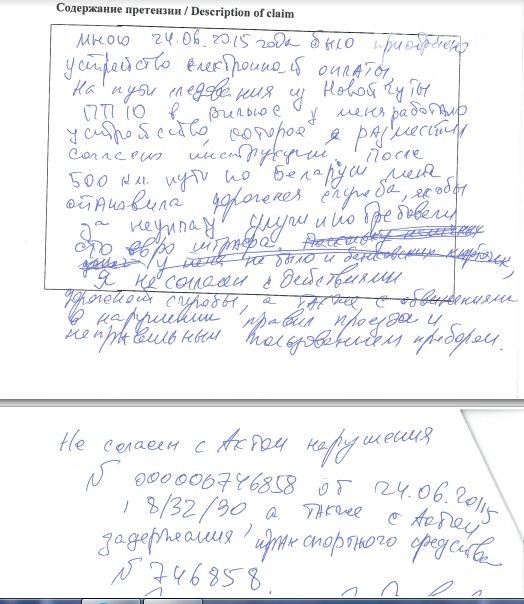 Содержание претензии / Description of claim
мною 24.06.2015 года было приобретено
устройство електронной оплаты,
На пути следования из Новой Гуты
ПП 10 в Вильнюс у меня работало
устройство, которое я разместил
согласно инструкции. После
500 км. пути по Беларуси меня
остановила дорожная служба, якобы
за неуплату услуги и потребовали
сто евро штрафа.
у меня не было и банковских карточек,
Я не согласен с действиями
дорожной службы, а также, с обвинениями
в нарушении правил проезда и
неправильным пользованием прибором.
Не согласен с Актом нарушения
N 000006746858 от 24.06.2015
18/32/30 а также с Актом
задержания транспортного средства
N 746858.